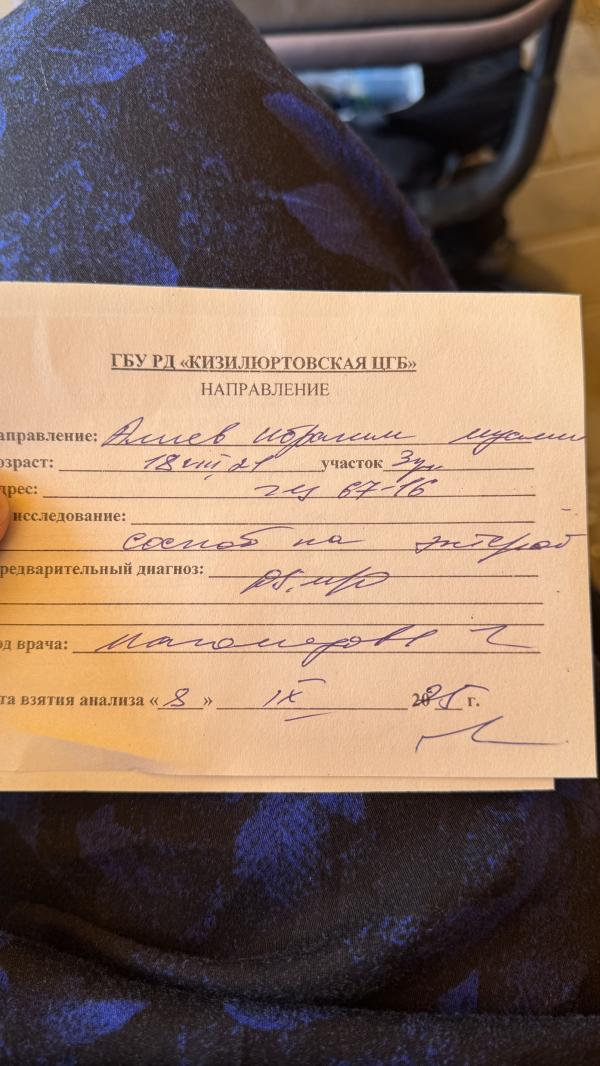 ГБУ РД «КИЗИЛЮРТОВСКАЯ ЦГБ»
НАПРАВЛЕНИЕ
аправление: Алиев Ибрагим
озраст: 18 VIII 21 участок 3
дрес: 67-16
исследование:
соскоб на энтероб
редварительный диагноз:
од врача: Магомедова
та взятия анализа «8» IX 2025 г.